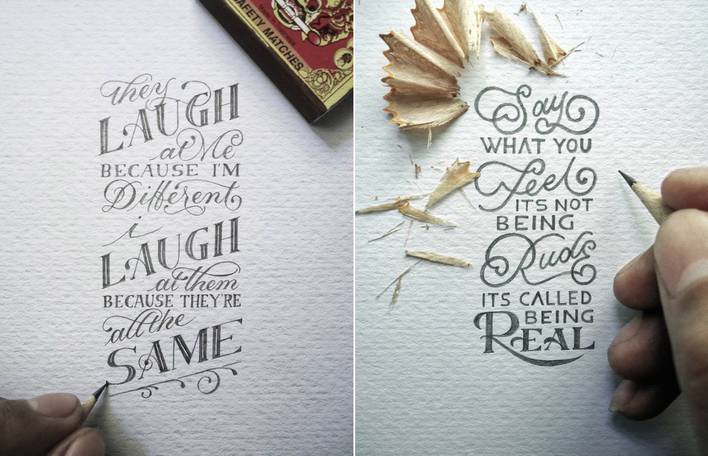 SAFETY MATCHES
they
LAUGH
at Me
BECAUSE I'M
Different
i
LAUGH
at them
BECAUSE THEY'RE
all the
SAME
Say
WHAT YOU
Feel
ITS NOT
BEING
Rude
ITS CALLED
BEING
REAL